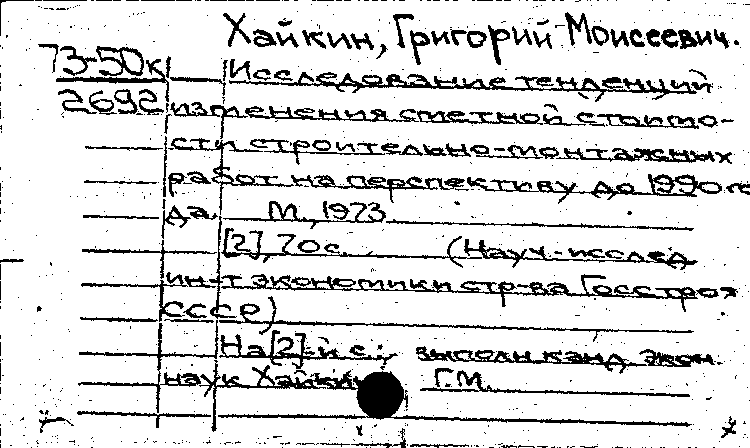 Хайкин, Григорий Моисеевич.
73-50к Исследование тенденций
2692 изменения сметной стоимо-
сти строительно-монтажных
работ на перспективу до 1990 го
да. М., 1973.
[2], 70 с. (Науч.-исслед
ин-т экономики стр-ва Госстроя
СССР)
На [2]-й с.: выполн канд экон.
наук Хайкин Г.М.